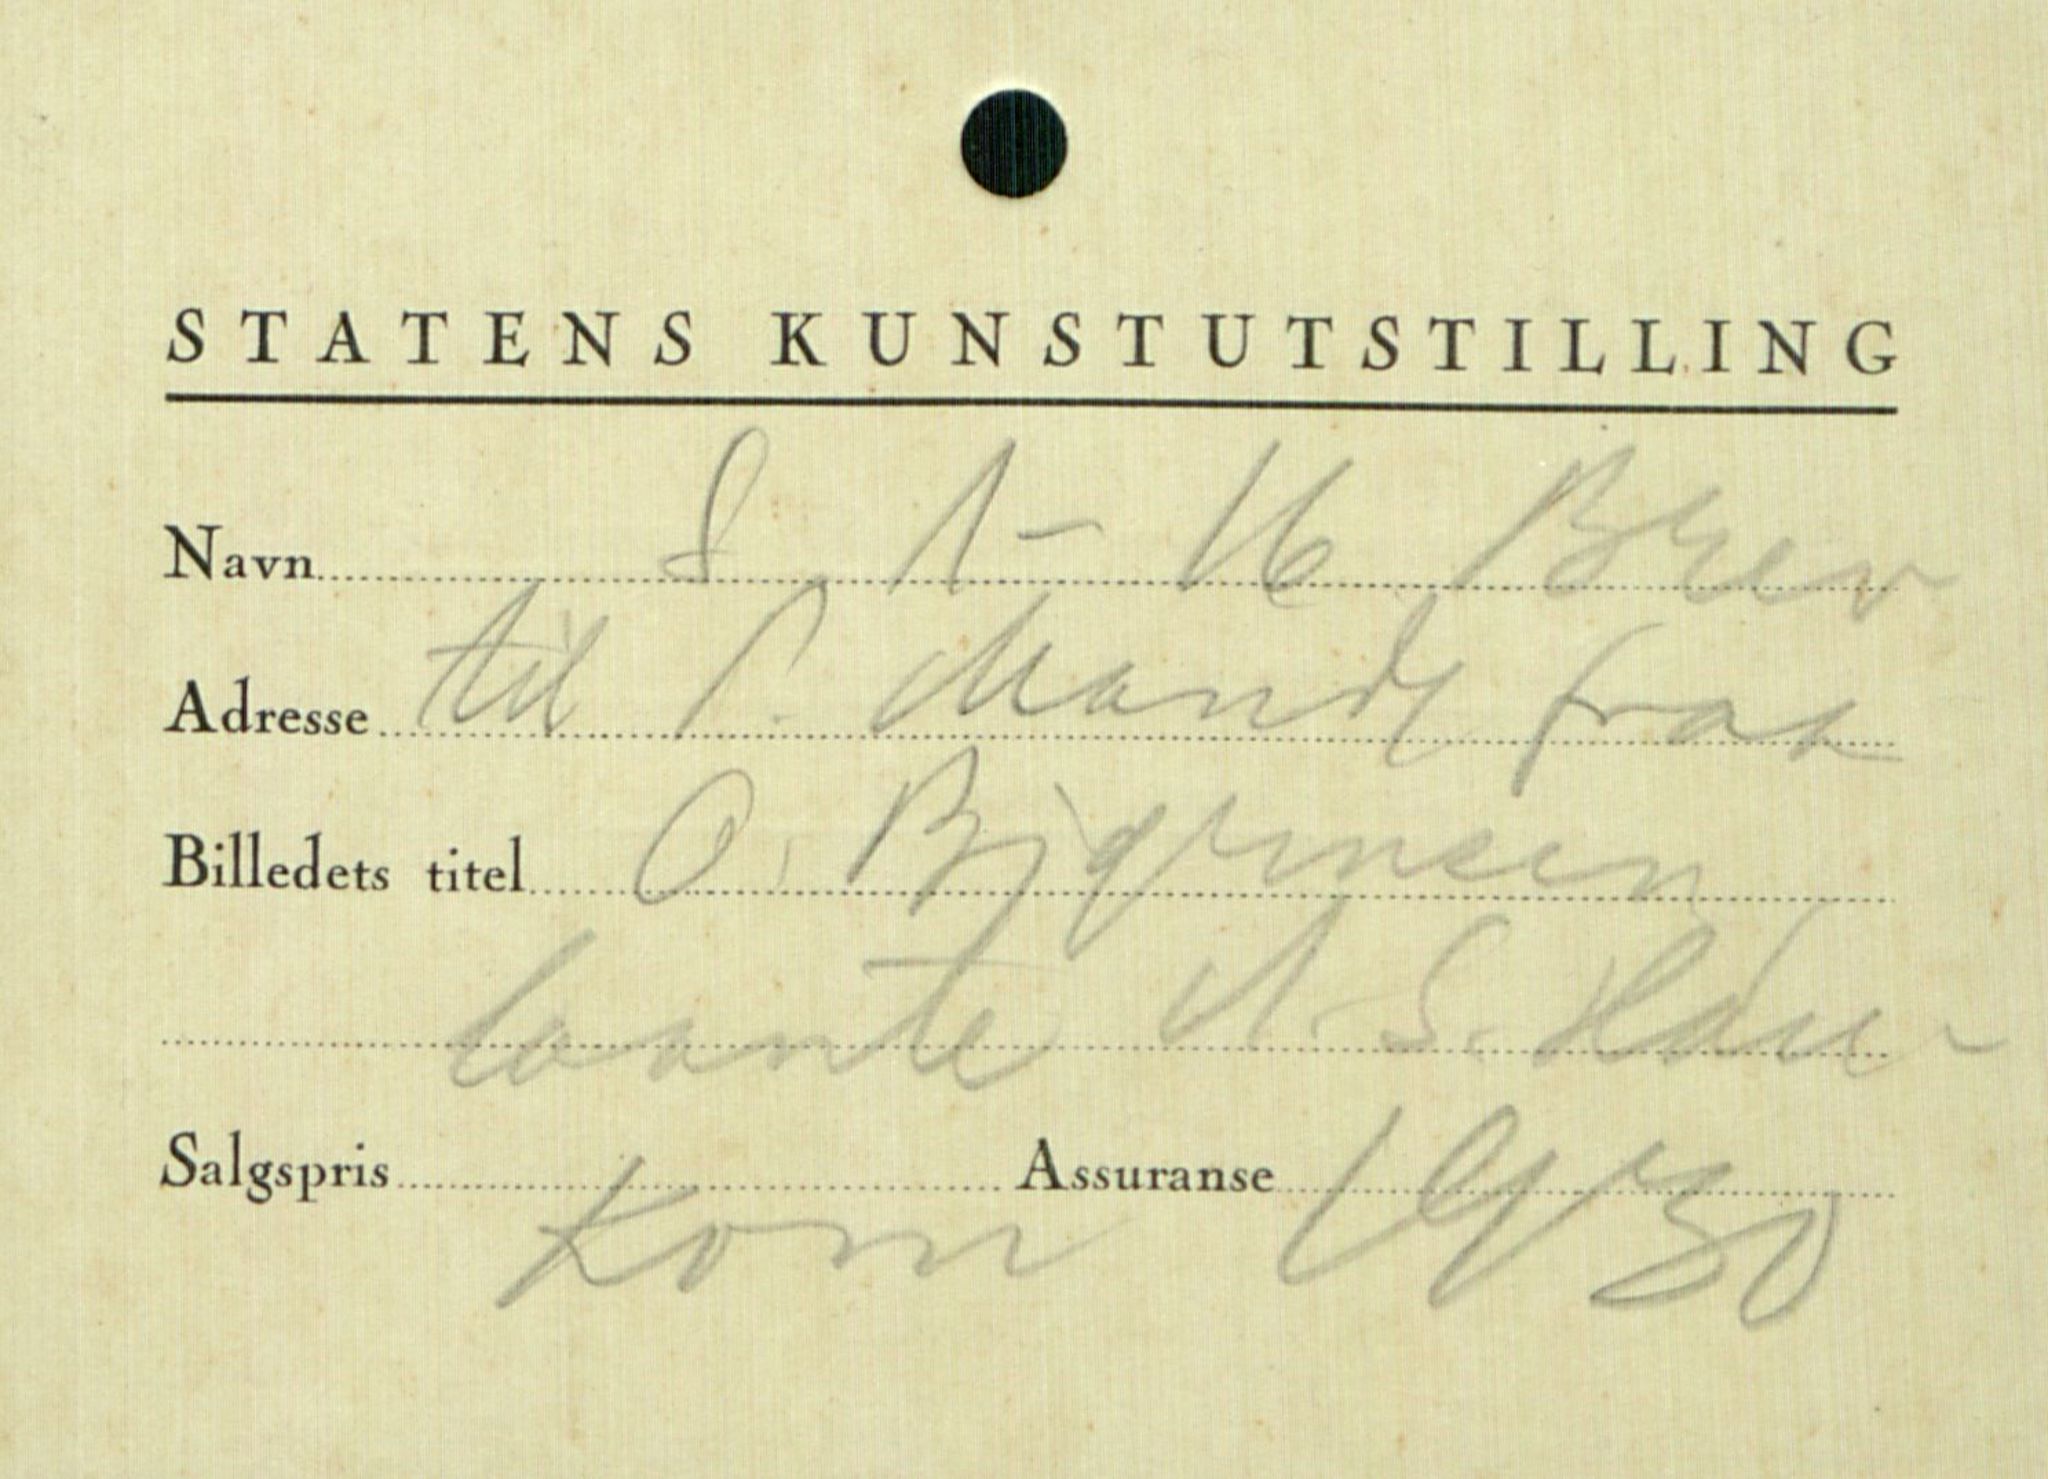 STATENS KUNSTUTSTILLING
Navn 8 1 - 16 Brev
Adresse til P. Mandt fraa
Billedets titel O. Bjørnsen
laante A. S. Hau-
Salgspris Assuranse
Kom 1930